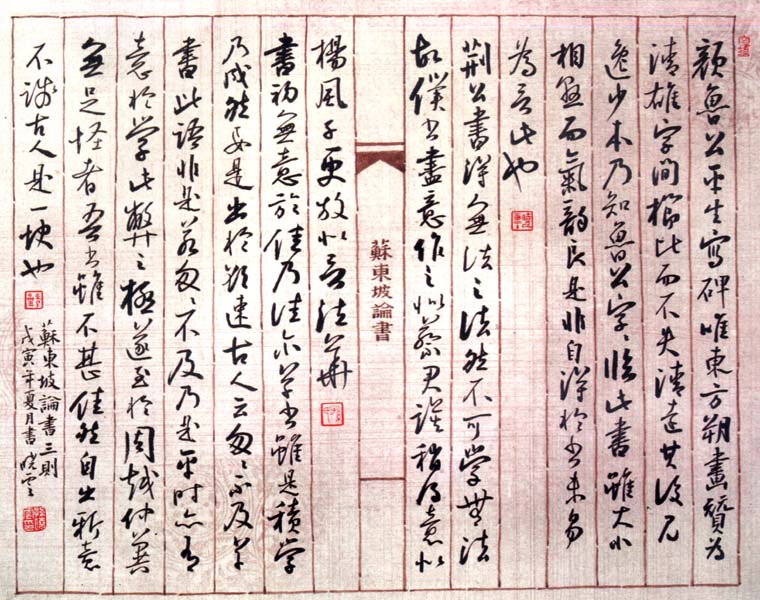 顏魯公平生寫碑唯東方朔畫贊為
清雄字間櫛比而不失清遠其後見
逸少本乃知魯公字〻臨此書雖大小
相懸而氣韻良是非自得於書未易
為言此也
荊公書得無法之法然不可學無法
故僕書盡意作之似蔡君謨稍得意似
蘇東坡論書
楊風子更放似言法華
書初無意於佳乃佳尔草書雖是積學
乃成然要是出於欲速古人云匆〻不及草
書此語非是若匆〻不及乃是平時亦有
意於學此弊之極遂至於周越仲翼
無足怪者吾書雖不甚佳然自出新意
不踐古人是一快也
蘇東坡論書三則
戊寅年夏月書 曉雲